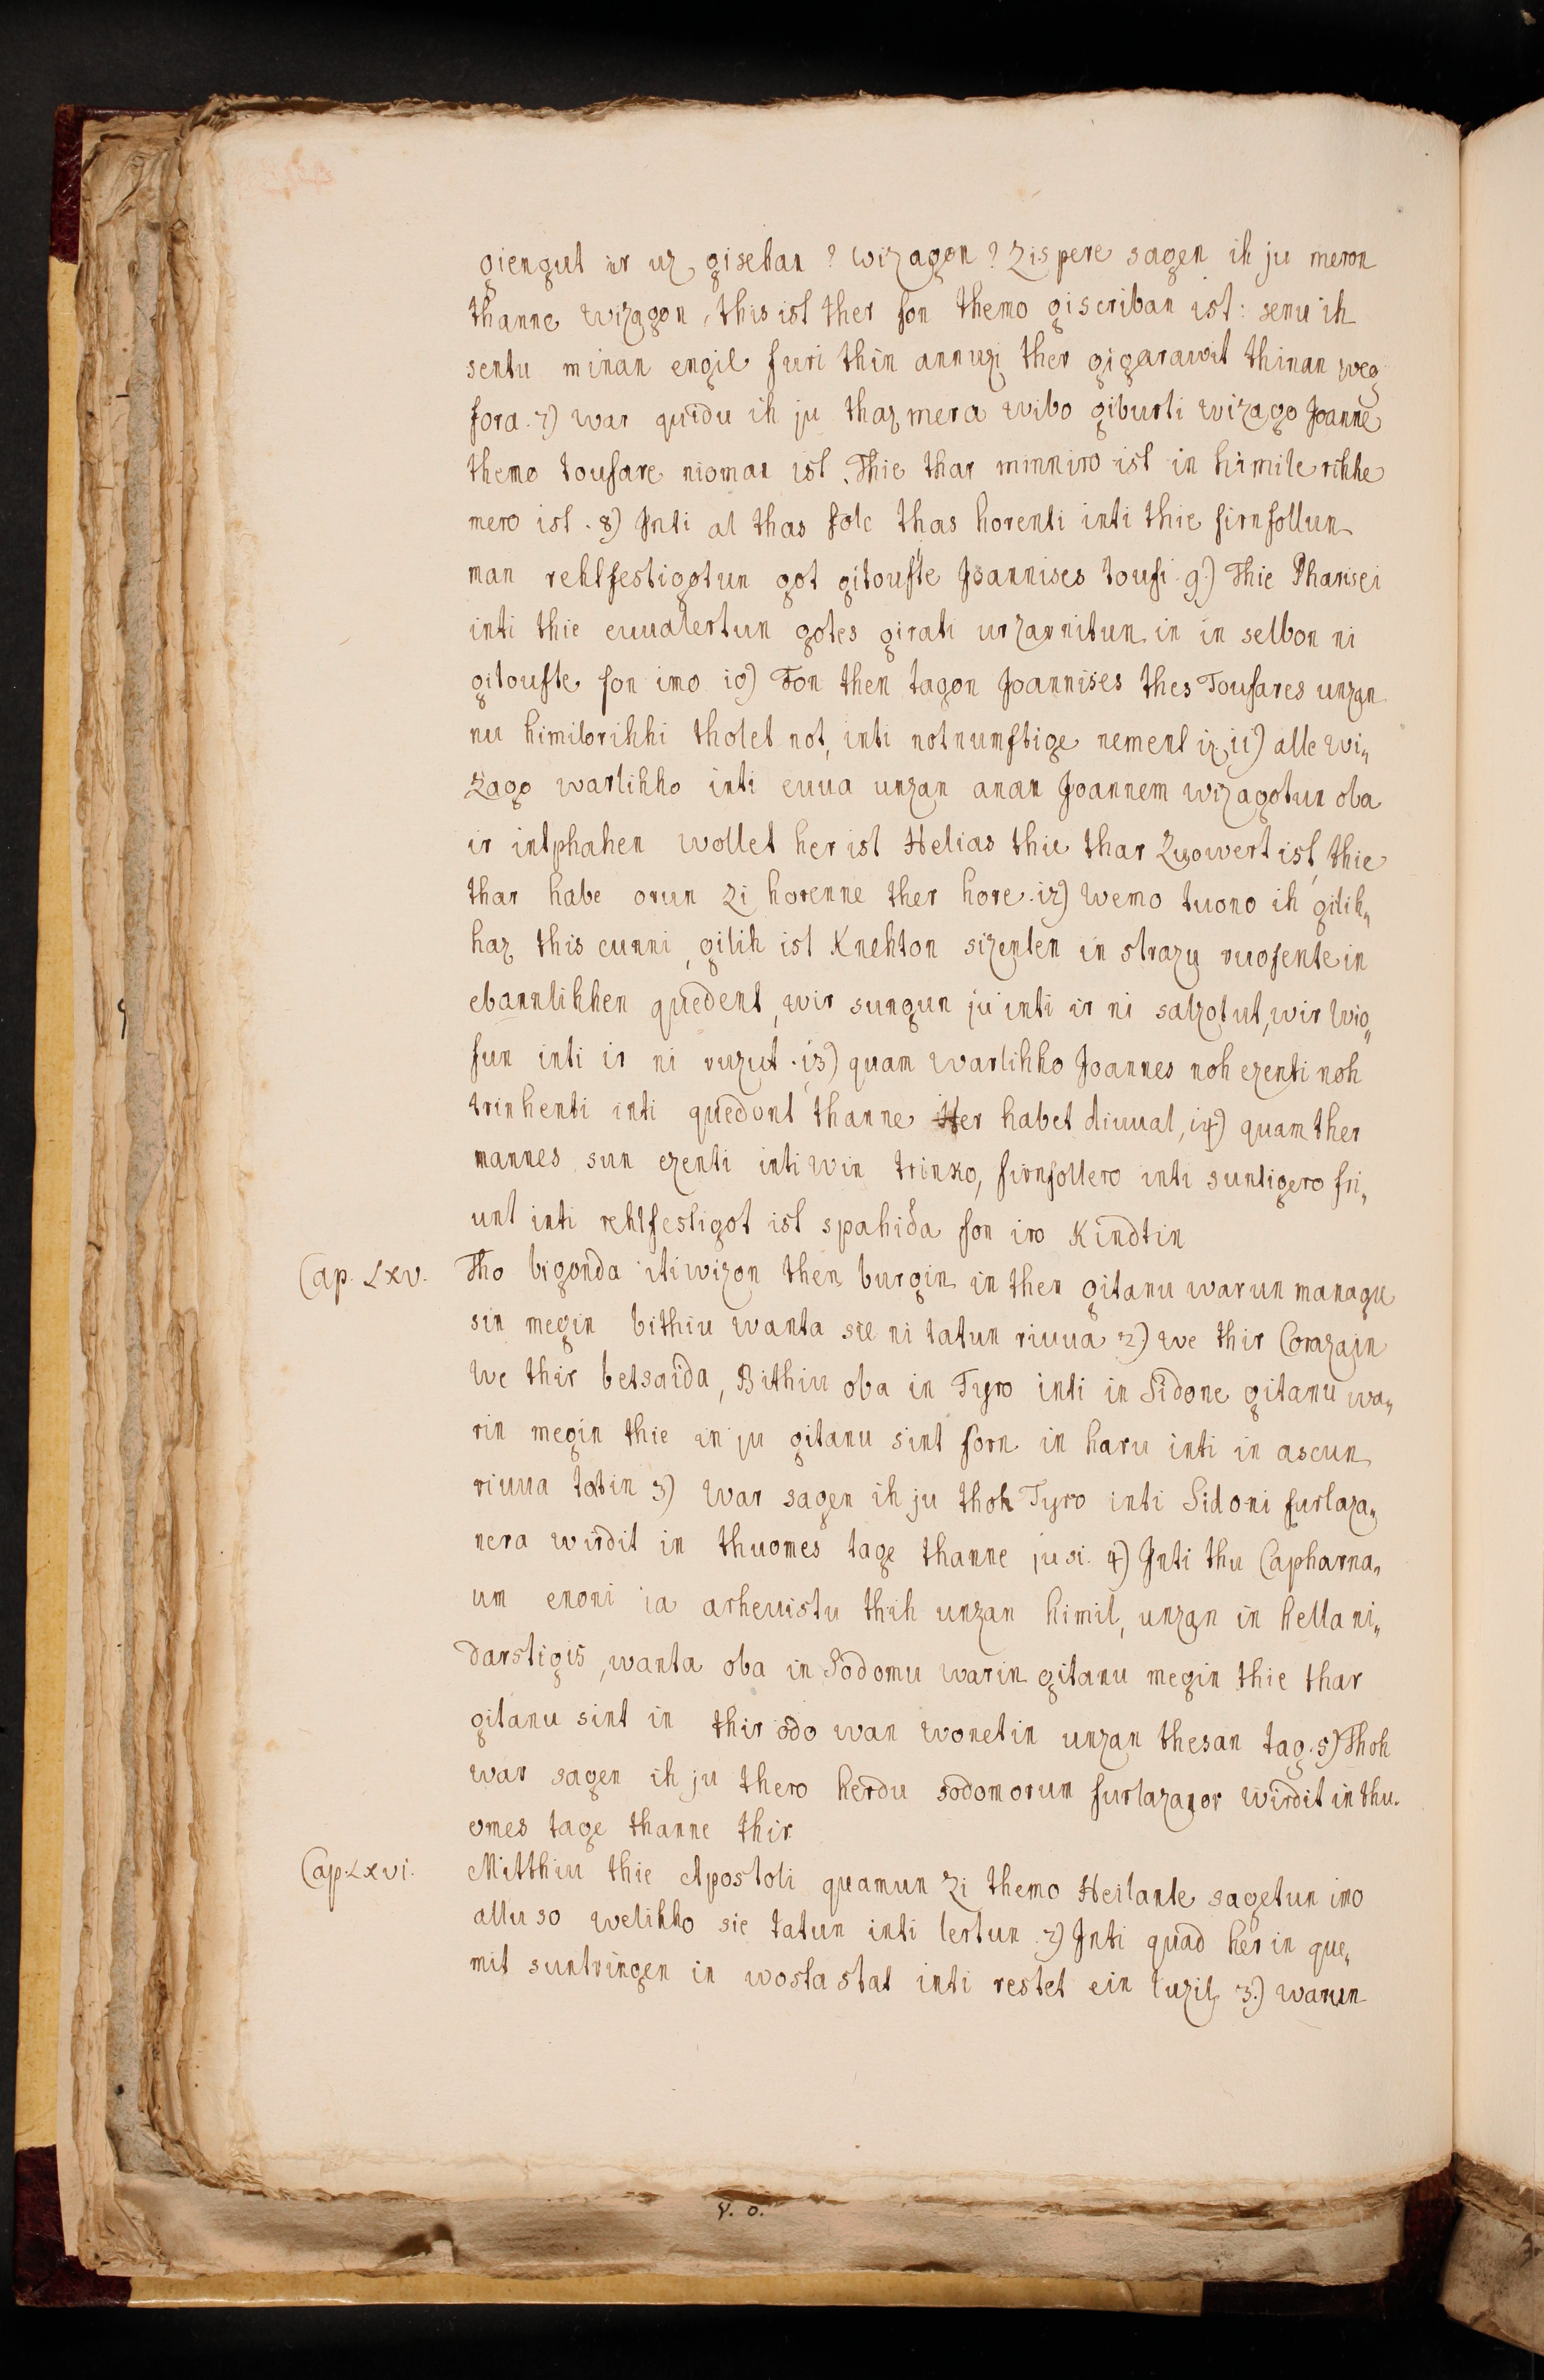 giengut ir uz gisehan? wizagon? Zispere sagen ih ju meron
thanne wizagon, this ist ther fon themo giscriban ist: senu ih
sentu minan engil furi thin annuzi ther gigarawit thinan weg
fora. 7) war quidu ih ju thaz mera wibo giburti wizago Joanne
themo toufare nioman ist. Thie thar minniro ist in himile rihhe
mero ist. 8) Inti al thas folc thas horenti inti thie firnfollun
man rehtfestigotun got gitoufte Joannises toufi. 9.) Thie Pharisei
inti thie euualertun gotes girati urzarnitun in in selbon ni
gitoufte fon imo 10) Fon then tagon Joannises thes Toufares unzan
nu himilorihhi tholet not, inti notnumftige nement iz, 11) alle wi„
zago warlihho inti euua unzan anan Joannem wizagotun oba
ir intphahen wollet her ist Helias thie thar Zuowert ist, thie
thar habe orun zi horenne ther hore. 12) wemo tuono ih gilih„
haz this cunni, gilih ist Knehton sizenten in strazu ruofente in
ebannlihhen quedent, wir sungun ju inti ir ni salzotut, wir wio„
fun inti ir ni ruzut. 13) quam warlihho Joannes noh ezenti noh
trinhenti inti quedont thanne Her habet diuual, 14) quam ther
mannes sun ezenti inti win trinko, firnfollero inti suntigero fri„
unt inti rehtfestigot ist spahida fon iro Kindtin
Cap. LXV. Tho bigonda itiwizon then burgin in then gitanu warun managu
sin megin bithiu wanta sie ni tatun riuua 2.) we thir Corazain
we thir betsaida, Bithiu oba in Tyro inti in Sidone gitanu wa„
rin megin thie in ju gitanu sint forn in haru inti in ascun
riuua tatin 3) war sagen ih ju thoh Tyro inti Sidoni furlaza„
nera wirdit in thuomes tage thanne ju si. 4) Inti thu Capharna„
um enoni ia arheuistu thih unzan himil, unzan in hella ni„
darstigis, wanta oba in Sodomu warin gitanu megin thie thar
gitanu sint in thir odo wan wonetin unzan thesan tag. 5) Thoh
war sagen ih ju thero herdu sodomorum furlazanor wirdit in thu.
omes tage thanne thir
Cap. LXVI. Mitthiu thie Apostoli quamun Zi themo Heilante sagetun imo
allu so welihho sie tatun inti lertun. 2) Inti quad her in que„
mit suntringen in wosta stat inti restet ein luzil, 3.) warun
V. O.